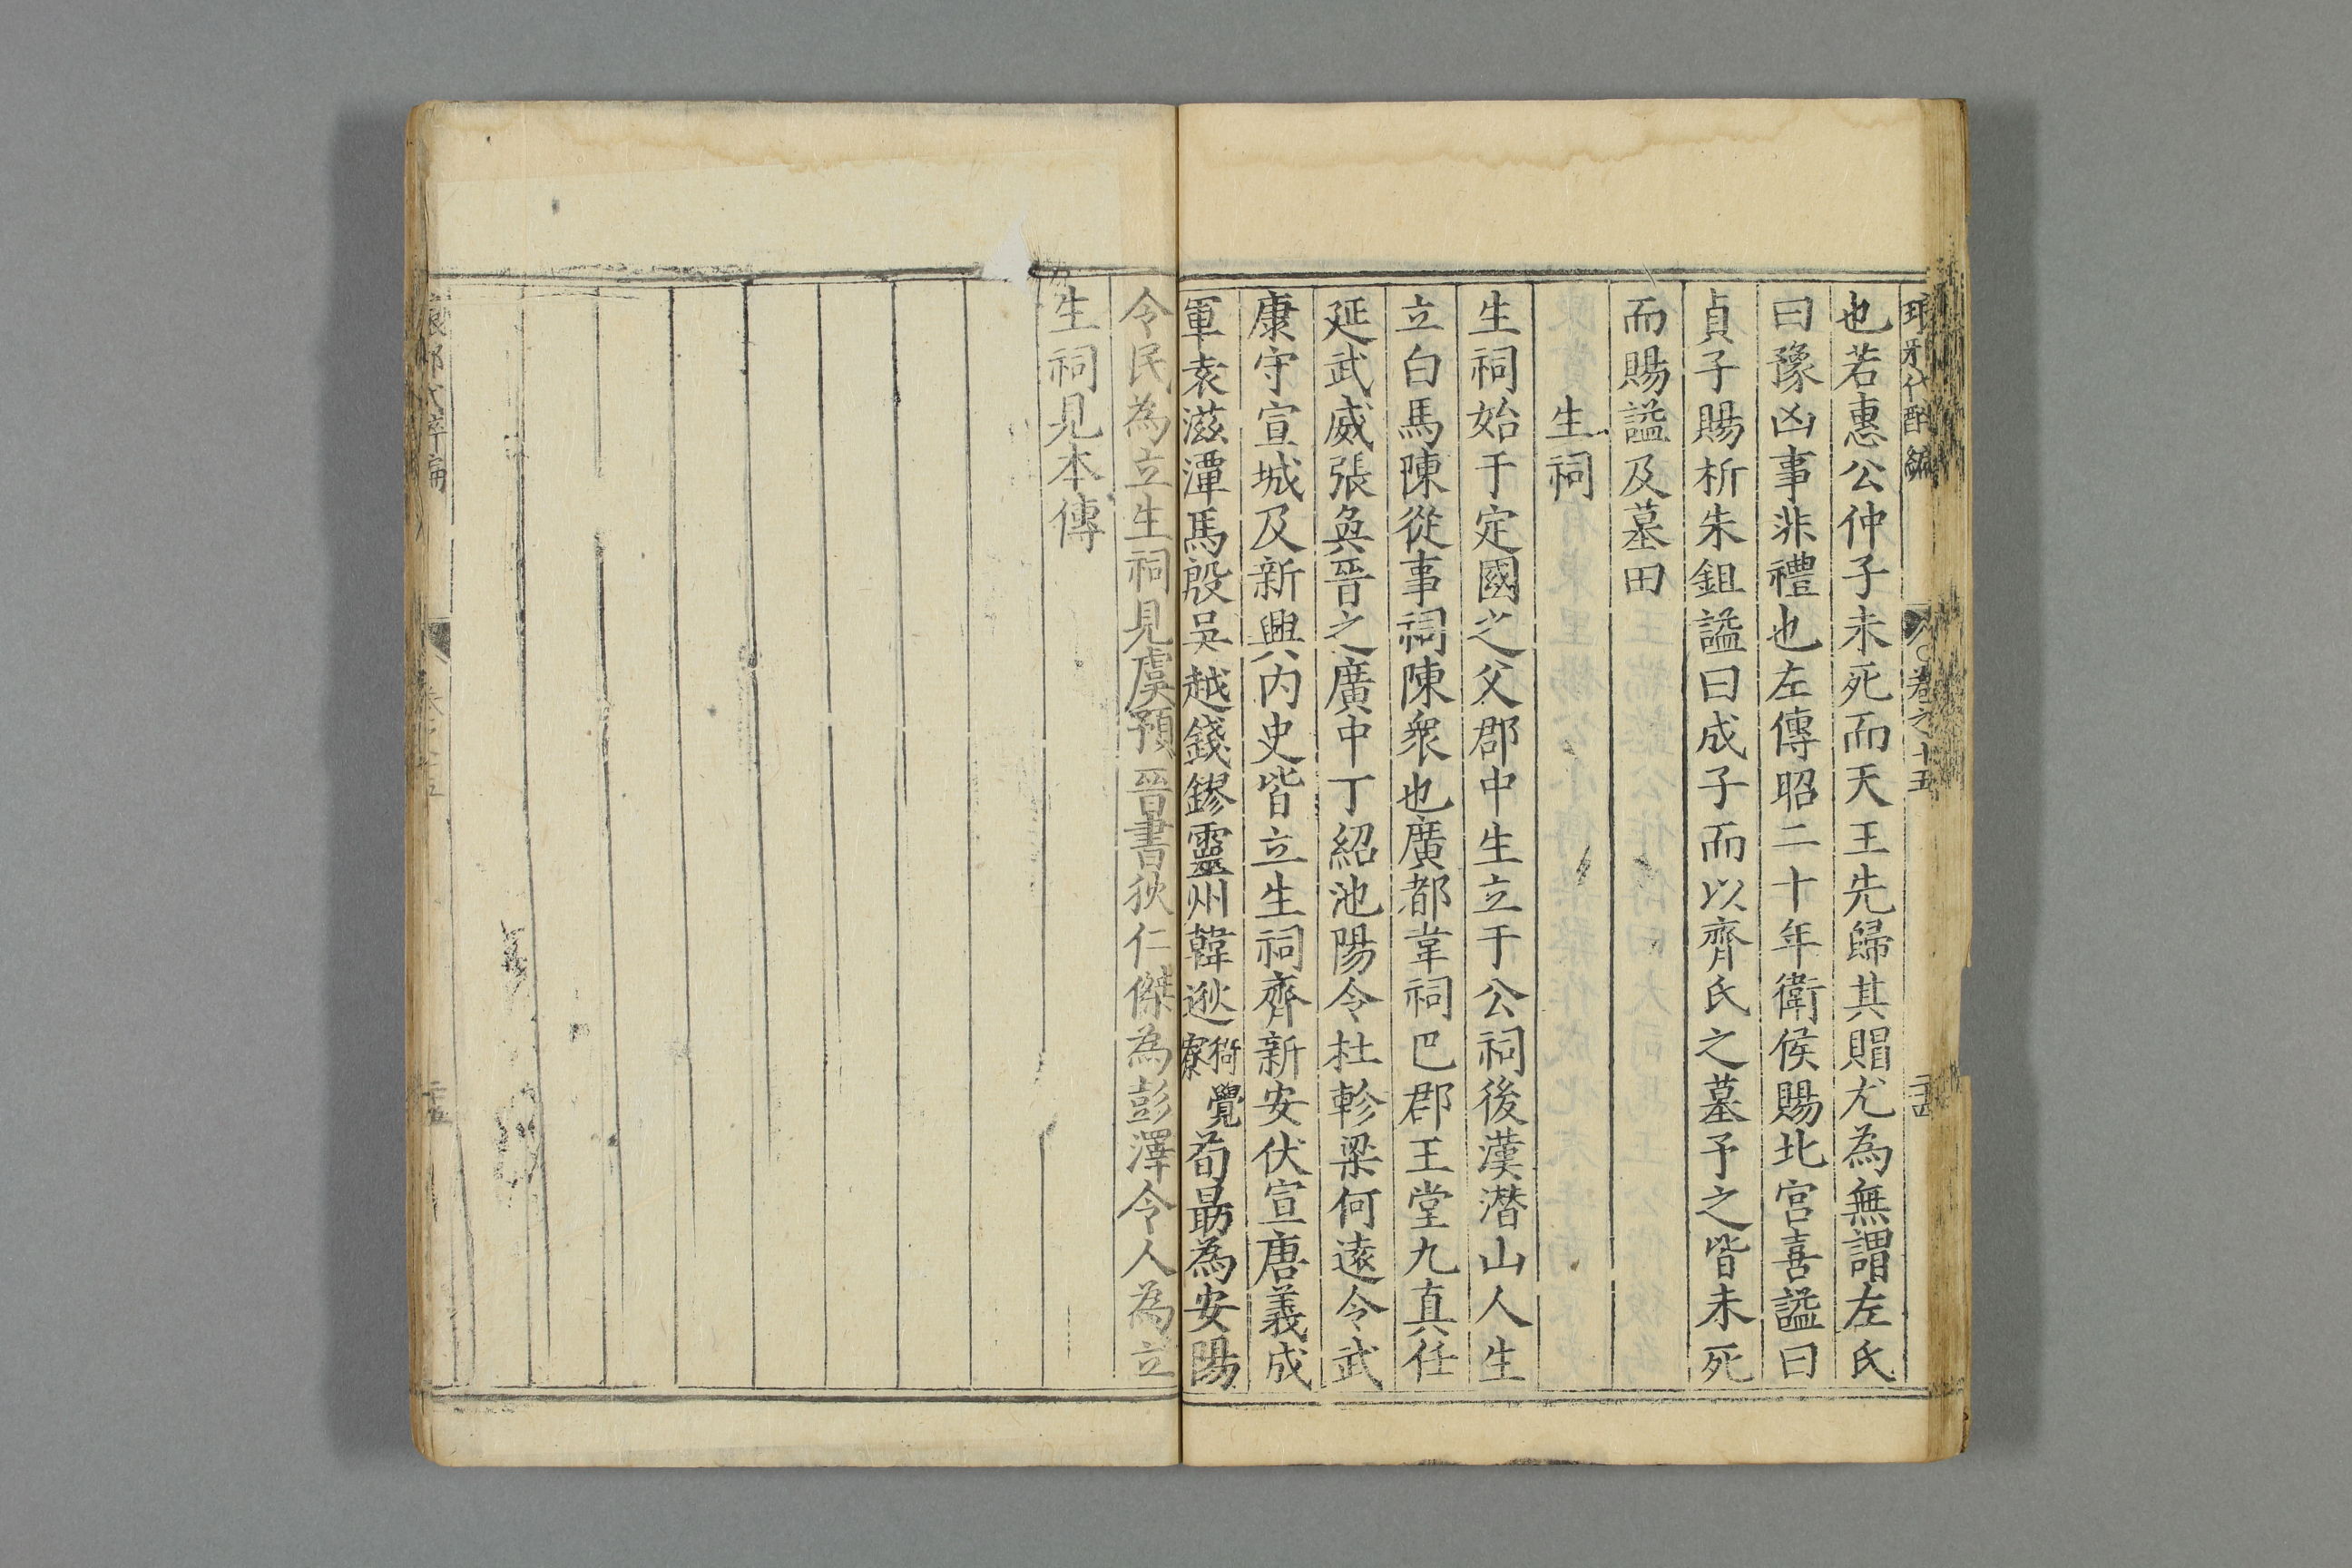 琅牙代醉編 卷之十五 二十四
也若惠公仲子未死而天王先歸其賵尤為無謂左氏
曰豫凶事非禮也左傳昭二十年衛侯賜北宮喜諡曰
貞子賜析朱鉏諡曰成子而以齊氏之墓予之皆未死
而賜諡及墓田
生祠
生祠始于定國之父郡中生立于公祠後漢潜山人生
立白馬陳從事祠陳衆也廣都韋祠巴郡王堂九真任
延武威張奐晉之廣中丁紹池陽令杜軫梁何逺令武
康守宣城及新興內史皆立生祠齊新安伏宣唐義成
軍袁滋潭馬殷吳越錢鏐靈州韓遜荀勗為安陽
令民為立生祠見虞預晉書狄仁傑為彭澤令人為立
生祠見本傳